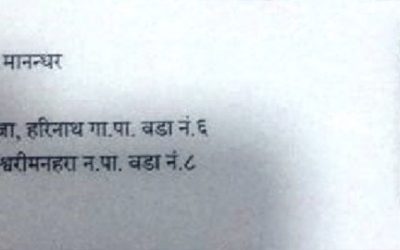 मानन्धर
जा, हरिनाथ गा.पा. वडा नं.६
श्वरीमनहरा न.पा. वडा नं.८